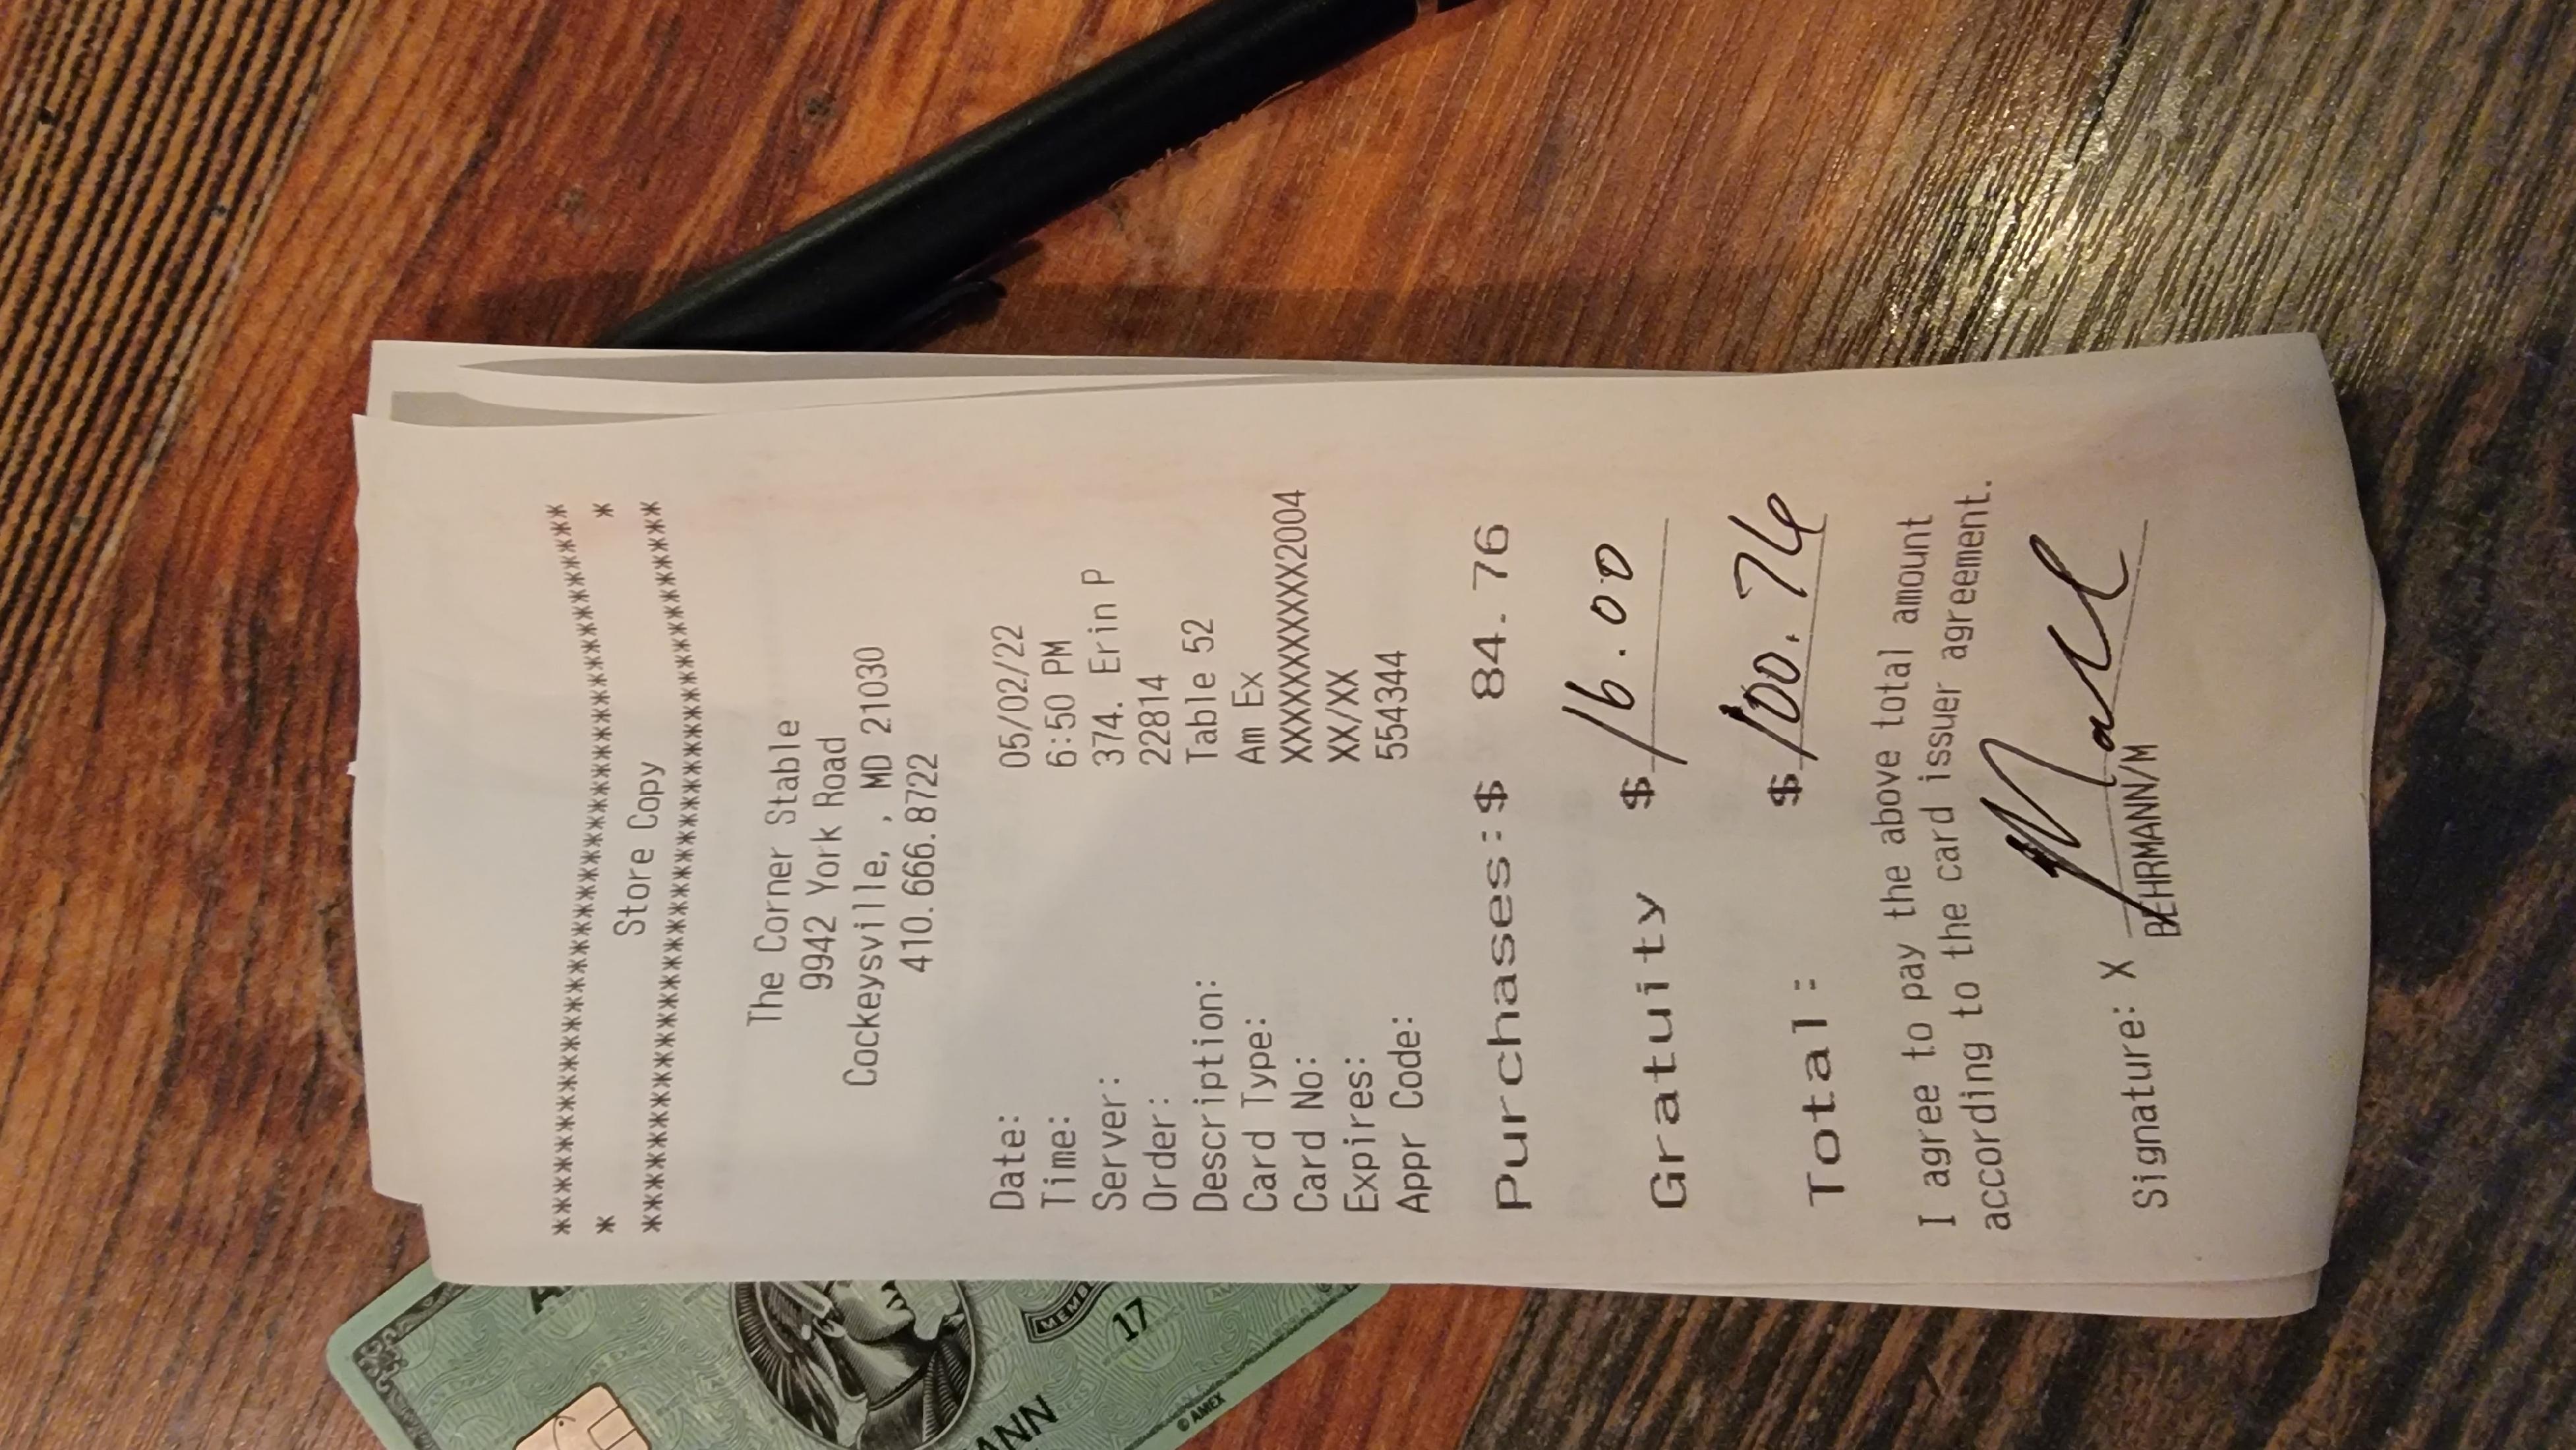 ***********************************
* Store Copy *
***********************************
The Corner Stable
9942 York Road
Cockeysville, , MD 21030
410.666.8722
Date: 05/02/22
Time: 6:50 PM
Server: 374. Erin P
Order: 22814
Description: Table 52
Card Type: Am Ex
Card No: XXXXXXXXXXX2004
Expires: XX/XX
Appr Code: 554344
Purchases:$ 84.76
Gratuity $ 16.00
Total: $ 100.76
I agree to pay the above total amount
according to the card issuer agreement.
Signature: X
BEHRMANN/M
17
© AMEX